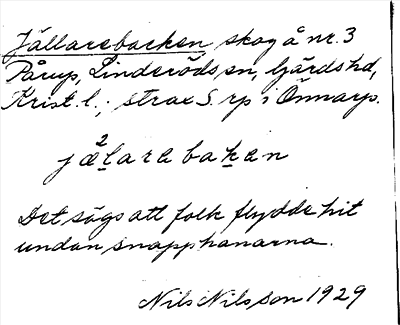 Jällarebacken, skog å nr. 3
Pårup, Linderöds sn, Gärds hd,
Krist. l.; strax S. rp i Önnarp.
jæ²larabakan
Det sägs att folk flydde hit
undan snapphanarna.
Nils Nilsson 1929